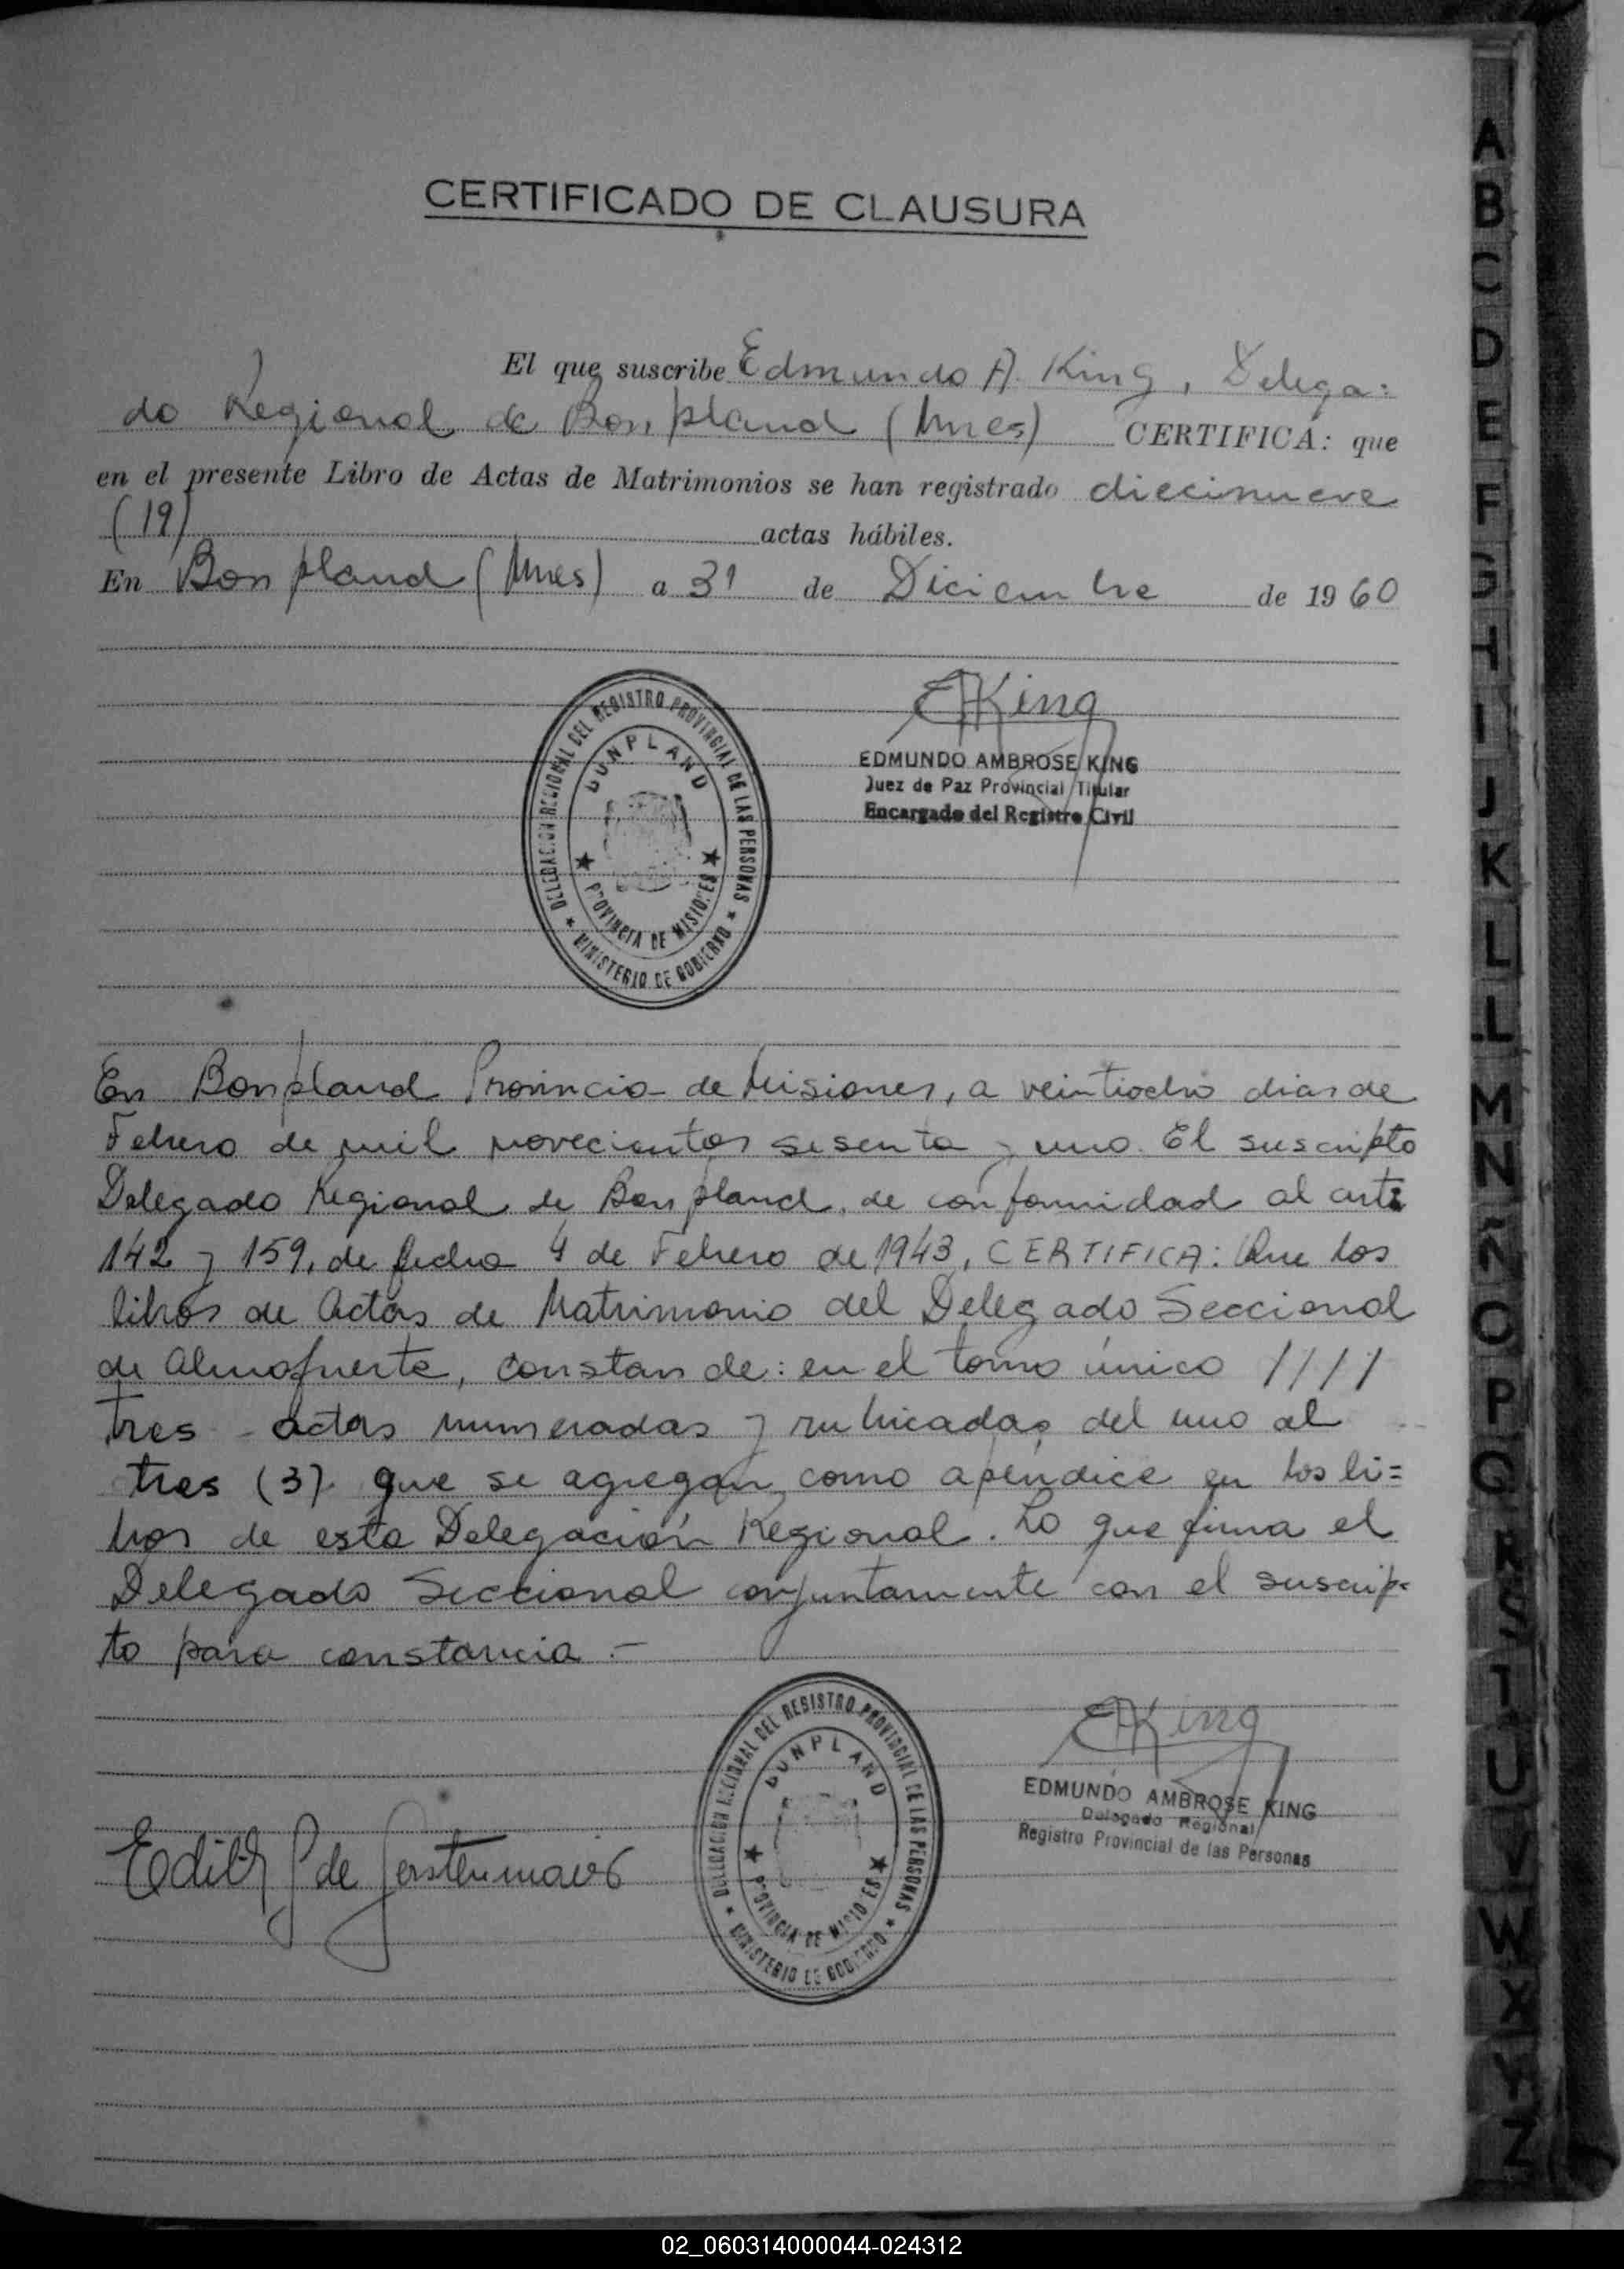 CERTIFICADO DE CLAUSURA
El que suscribe Edmundo A. King, Delega=
do Regional de Bonpland (Mnes) CERTIFICA: que
en el presente Libro de Actas de Matrimonios se han registrado diecinueve
(19) actas hábiles.
En Bonpland (Mnes) a 31 de Diciembre de 1960
DELEGACION REGIONAL DEL REGISTRO PROVINCIAL DE LAS PERSONAS
BONPLAND
PROVINCIA DE MISIONES
MINISTERIO DE GOBIERNO
EAKing
EDMUNDO AMBROSE KING
Juez de Paz Provincial Titular
Encargado del Registro Civil
En Bonpland Provincia de Misiones, a veintiocho dias de
Febrero de mil novecientos sesenta y uno. El suscripto
Delegado Regional de Bonpland, de conformidad al arts
142 y 159, de fecha 4 de Febrero de 1943, CERTIFICA: Que los
libros de Actas de Matrimonio del Delegado Seccional
de Almafuerte, constan de: en el tomo único ////
tres - actas numeradas y rubricadas del uno al
tres (3) que se agregan como apéndice en los li=
bros de esta Delegación Regional. Lo que firma el
Delegado Seccional conjuntamente con el suscrip-
to para constancia.-
DELEGACION REGIONAL DEL REGISTRO PROVINCIAL DE LAS PERSONAS
BONPLAND
PROVINCIA DE MISIONES
MINISTERIO DE GOBIERNO
EAKing
EDMUNDO AMBROSE KING
Delegado Regional
Registro Provincial de las Personas
Edith de
A
B
C
D
E
F
G
H
I
J
K
L
LL
M
N
Ñ
O
P
Q
R
S
T
U
V
W
X
Y
Z
02_060314000044-024312